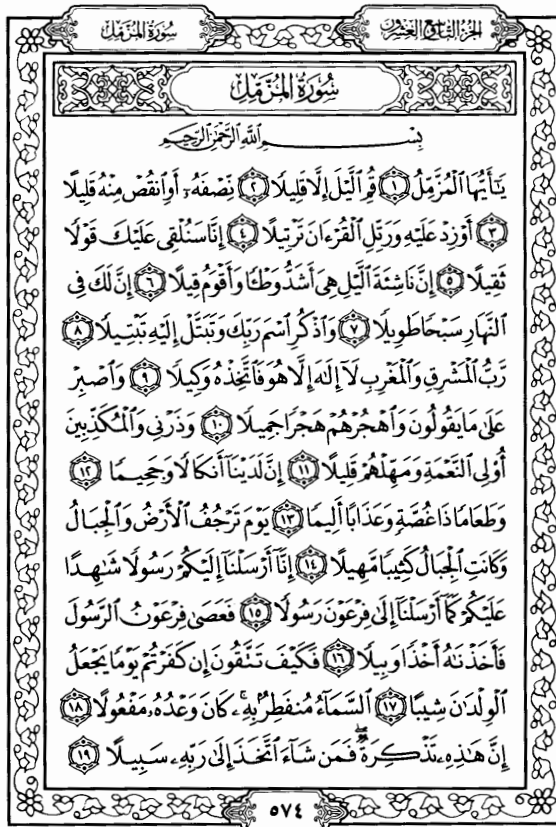 الجزء التاسع والعشرون
سُورَةُ المُزَّمِّل
سُورَةُ المُزَّمِّلِ
بِسْمِ ٱللَّهِ ٱلرَّحْمَٰنِ ٱلرَّحِيمِ
يَـٰٓأَيُّهَا ٱلْمُزَّمِّلُ ۝١ قُمِ ٱلَّيْلَ إِلَّا قَلِيلًا ۝٢ نِّصْفَهُۥٓ أَوِ ٱنقُصْ مِنْهُ قَلِيلًا
۝٣ أَوْ زِدْ عَلَيْهِ وَرَتِّلِ ٱلْقُرْءَانَ تَرْتِيلًا ۝٤ إِنَّا سَنُلْقِى عَلَيْكَ قَوْلًا
ثَقِيلًا ۝٥ إِنَّ نَاشِئَةَ ٱلَّيْلِ هِىَ أَشَدُّ وَطْـًٔا وَأَقْوَمُ قِيلًا ۝٦ إِنَّ لَكَ فِى
ٱلنَّهَارِ سَبْحًا طَوِيلًا ۝٧ وَٱذْكُرِ ٱسْمَ رَبِّكَ وَتَبَتَّلْ إِلَيْهِ تَبْتِيلًا ۝٨
رَّبُّ ٱلْمَشْرِقِ وَٱلْمَغْرِبِ لَآ إِلَـٰهَ إِلَّا هُوَ فَٱتَّخِذْهُ وَكِيلًا ۝٩ وَٱصْبِرْ
عَلَىٰ مَا يَقُولُونَ وَٱهْجُرْهُمْ هَجْرًا جَمِيلًا ۝١٠ وَذَرْنِى وَٱلْمُكَذِّبِينَ
أُو۟لِى ٱلنَّعْمَةِ وَمَهِّلْهُمْ قَلِيلًا ۝١١ إِنَّ لَدَيْنَآ أَنكَالًا وَجَحِيمًا ۝١٢
وَطَعَامًا ذَا غُصَّةٍ وَعَذَابًا أَلِيمًا ۝١٣ يَوْمَ تَرْجُفُ ٱلْأَرْضُ وَٱلْجِبَالُ
وَكَانَتِ ٱلْجِبَالُ كَثِيبًا مَّهِيلًا ۝١٤ إِنَّآ أَرْسَلْنَآ إِلَيْكُمْ رَسُولًا شَـٰهِدًا
عَلَيْكُمْ كَمَآ أَرْسَلْنَآ إِلَىٰ فِرْعَوْنَ رَسُولًا ۝١٥ فَعَصَىٰ فِرْعَوْنُ ٱلرَّسُولَ
فَأَخَذْنَـٰهُ أَخْذًا وَبِيلًا ۝١٦ فَكَيْفَ تَتَّقُونَ إِن كَفَرْتُمْ يَوْمًا يَجْعَلُ
ٱلْوِلْدَٰنَ شِيبًا ۝١٧ ٱلسَّمَآءُ مُنفَطِرٌۢ بِهِۦ ۚ كَانَ وَعْدُهُۥ مَفْعُولًا ۝١٨
إِنَّ هَـٰذِهِۦ تَذْكِرَةٌ ۖ فَمَن شَآءَ ٱتَّخَذَ إِلَىٰ رَبِّهِۦ سَبِيلًا ۝١٩
٥٧٤